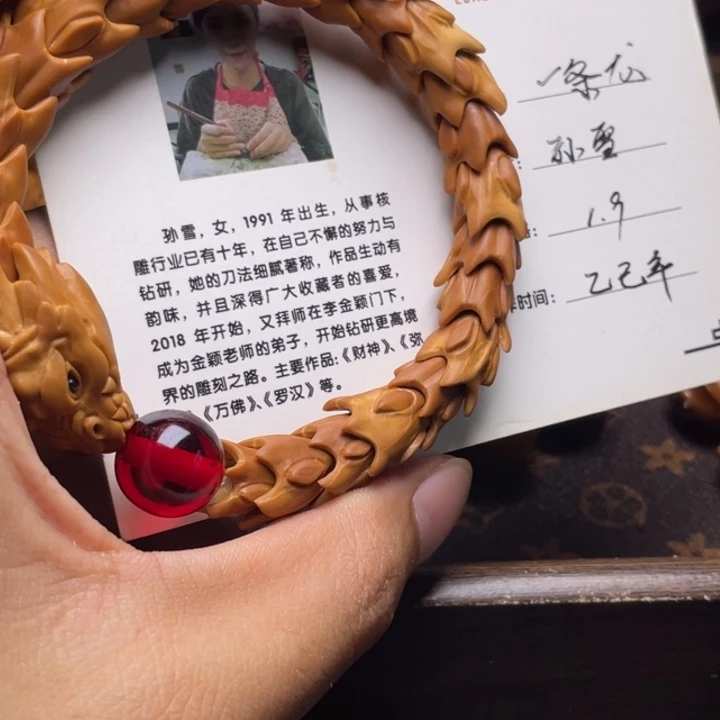 一条龙
孙雪
1.9
时间：乙巳年
孙雪，女，1991 年出生，从事核
雕行业已有十年，在自己不懈的努力与
钻研，她的刀法细腻著称，作品生动有
韵味，并且深得广大收藏者的喜爱，
2018 年开始，又拜师在李金颖门下，
成为金颖老师的弟子，开始钻研更高境
界的雕刻之路。主要作品：《财神》、《弥
《万佛》、《罗汉》等。